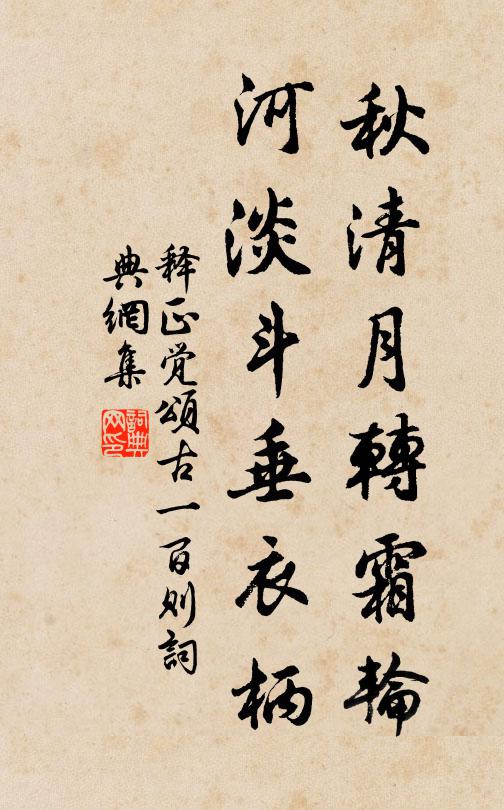 秋清月轉霜輪
河淡斗垂夜柄
释正觉頌古一百则詞
典網集
詞典
网印